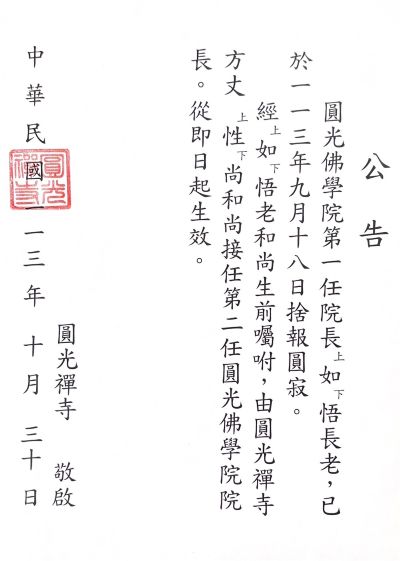 公告
圓光佛學院第一任院長上如下悟長老，已
於一一三年九月十八日捨報圓寂。
經上如下悟老和尚生前囑咐，由圓光禪寺
方丈上性下尚和尚接任第二任圓光佛學院院
長。從即日起生效。
圓光禪寺 敬啟
中華民國一一三年十月三十日
圓光禪寺